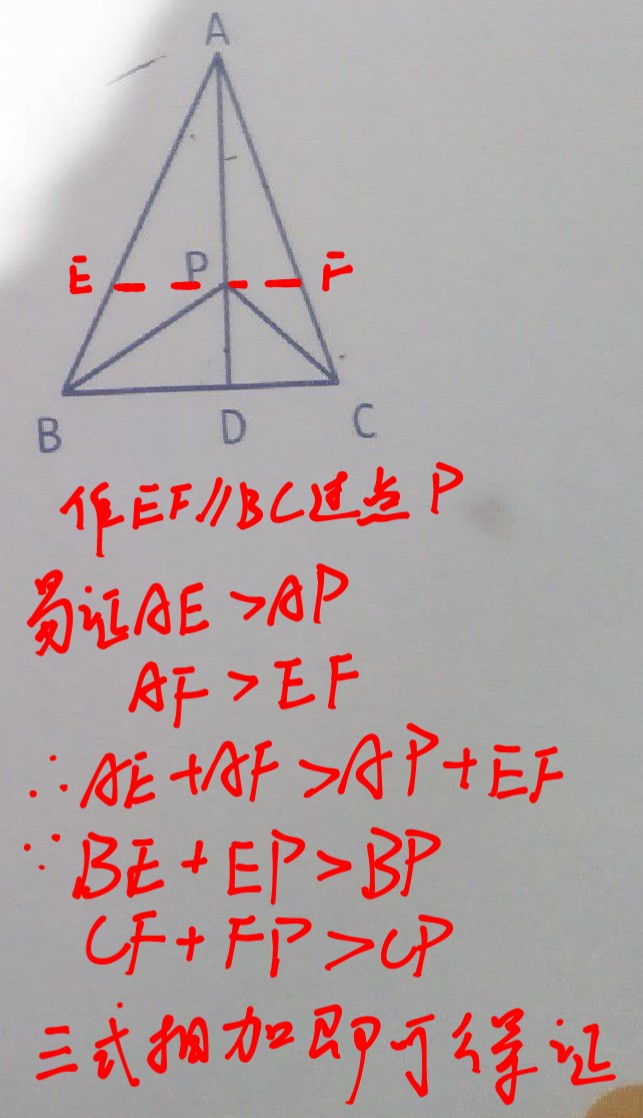 A
E P F
B D C
作EF∥BC过点P
易证AE>AP
AF>EF
∴AE+AF>AP+EF
∵BE+EP>BP
CF+FP>CP
三式相加即可得证